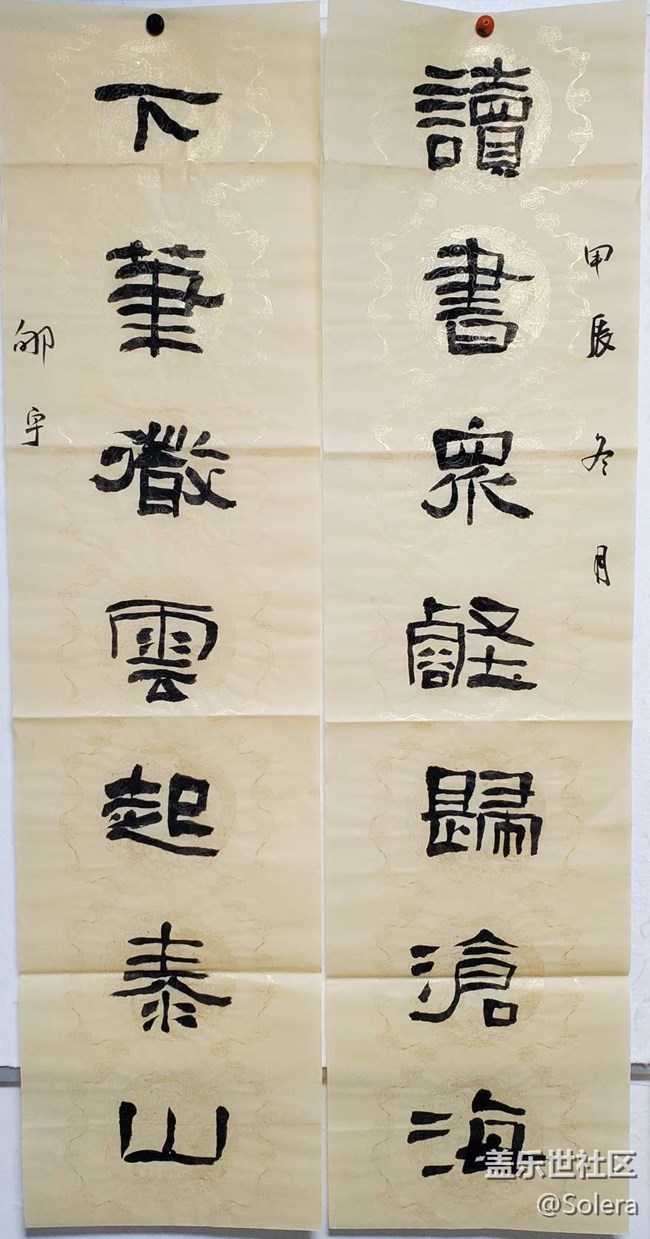 甲辰冬月
讀書眾壑歸滄海
下筆微雲起泰山
宇
盖乐世社区
@Solera